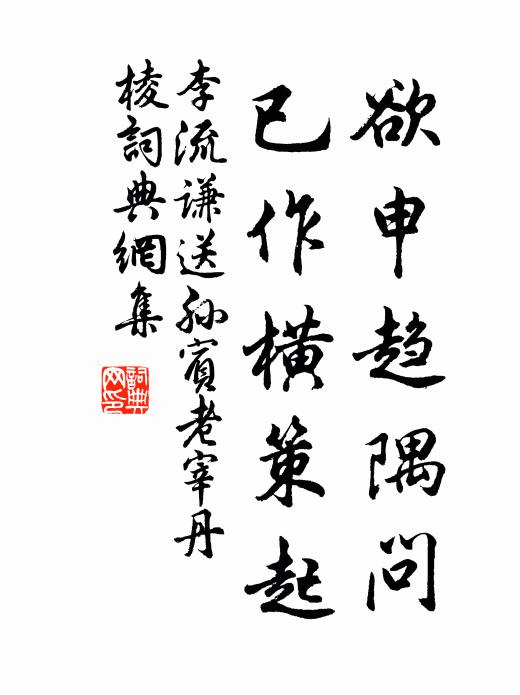 欲申趋隅问
已作横策起
李流谦送孙宾老宰丹
棱词典网集
词典
网印